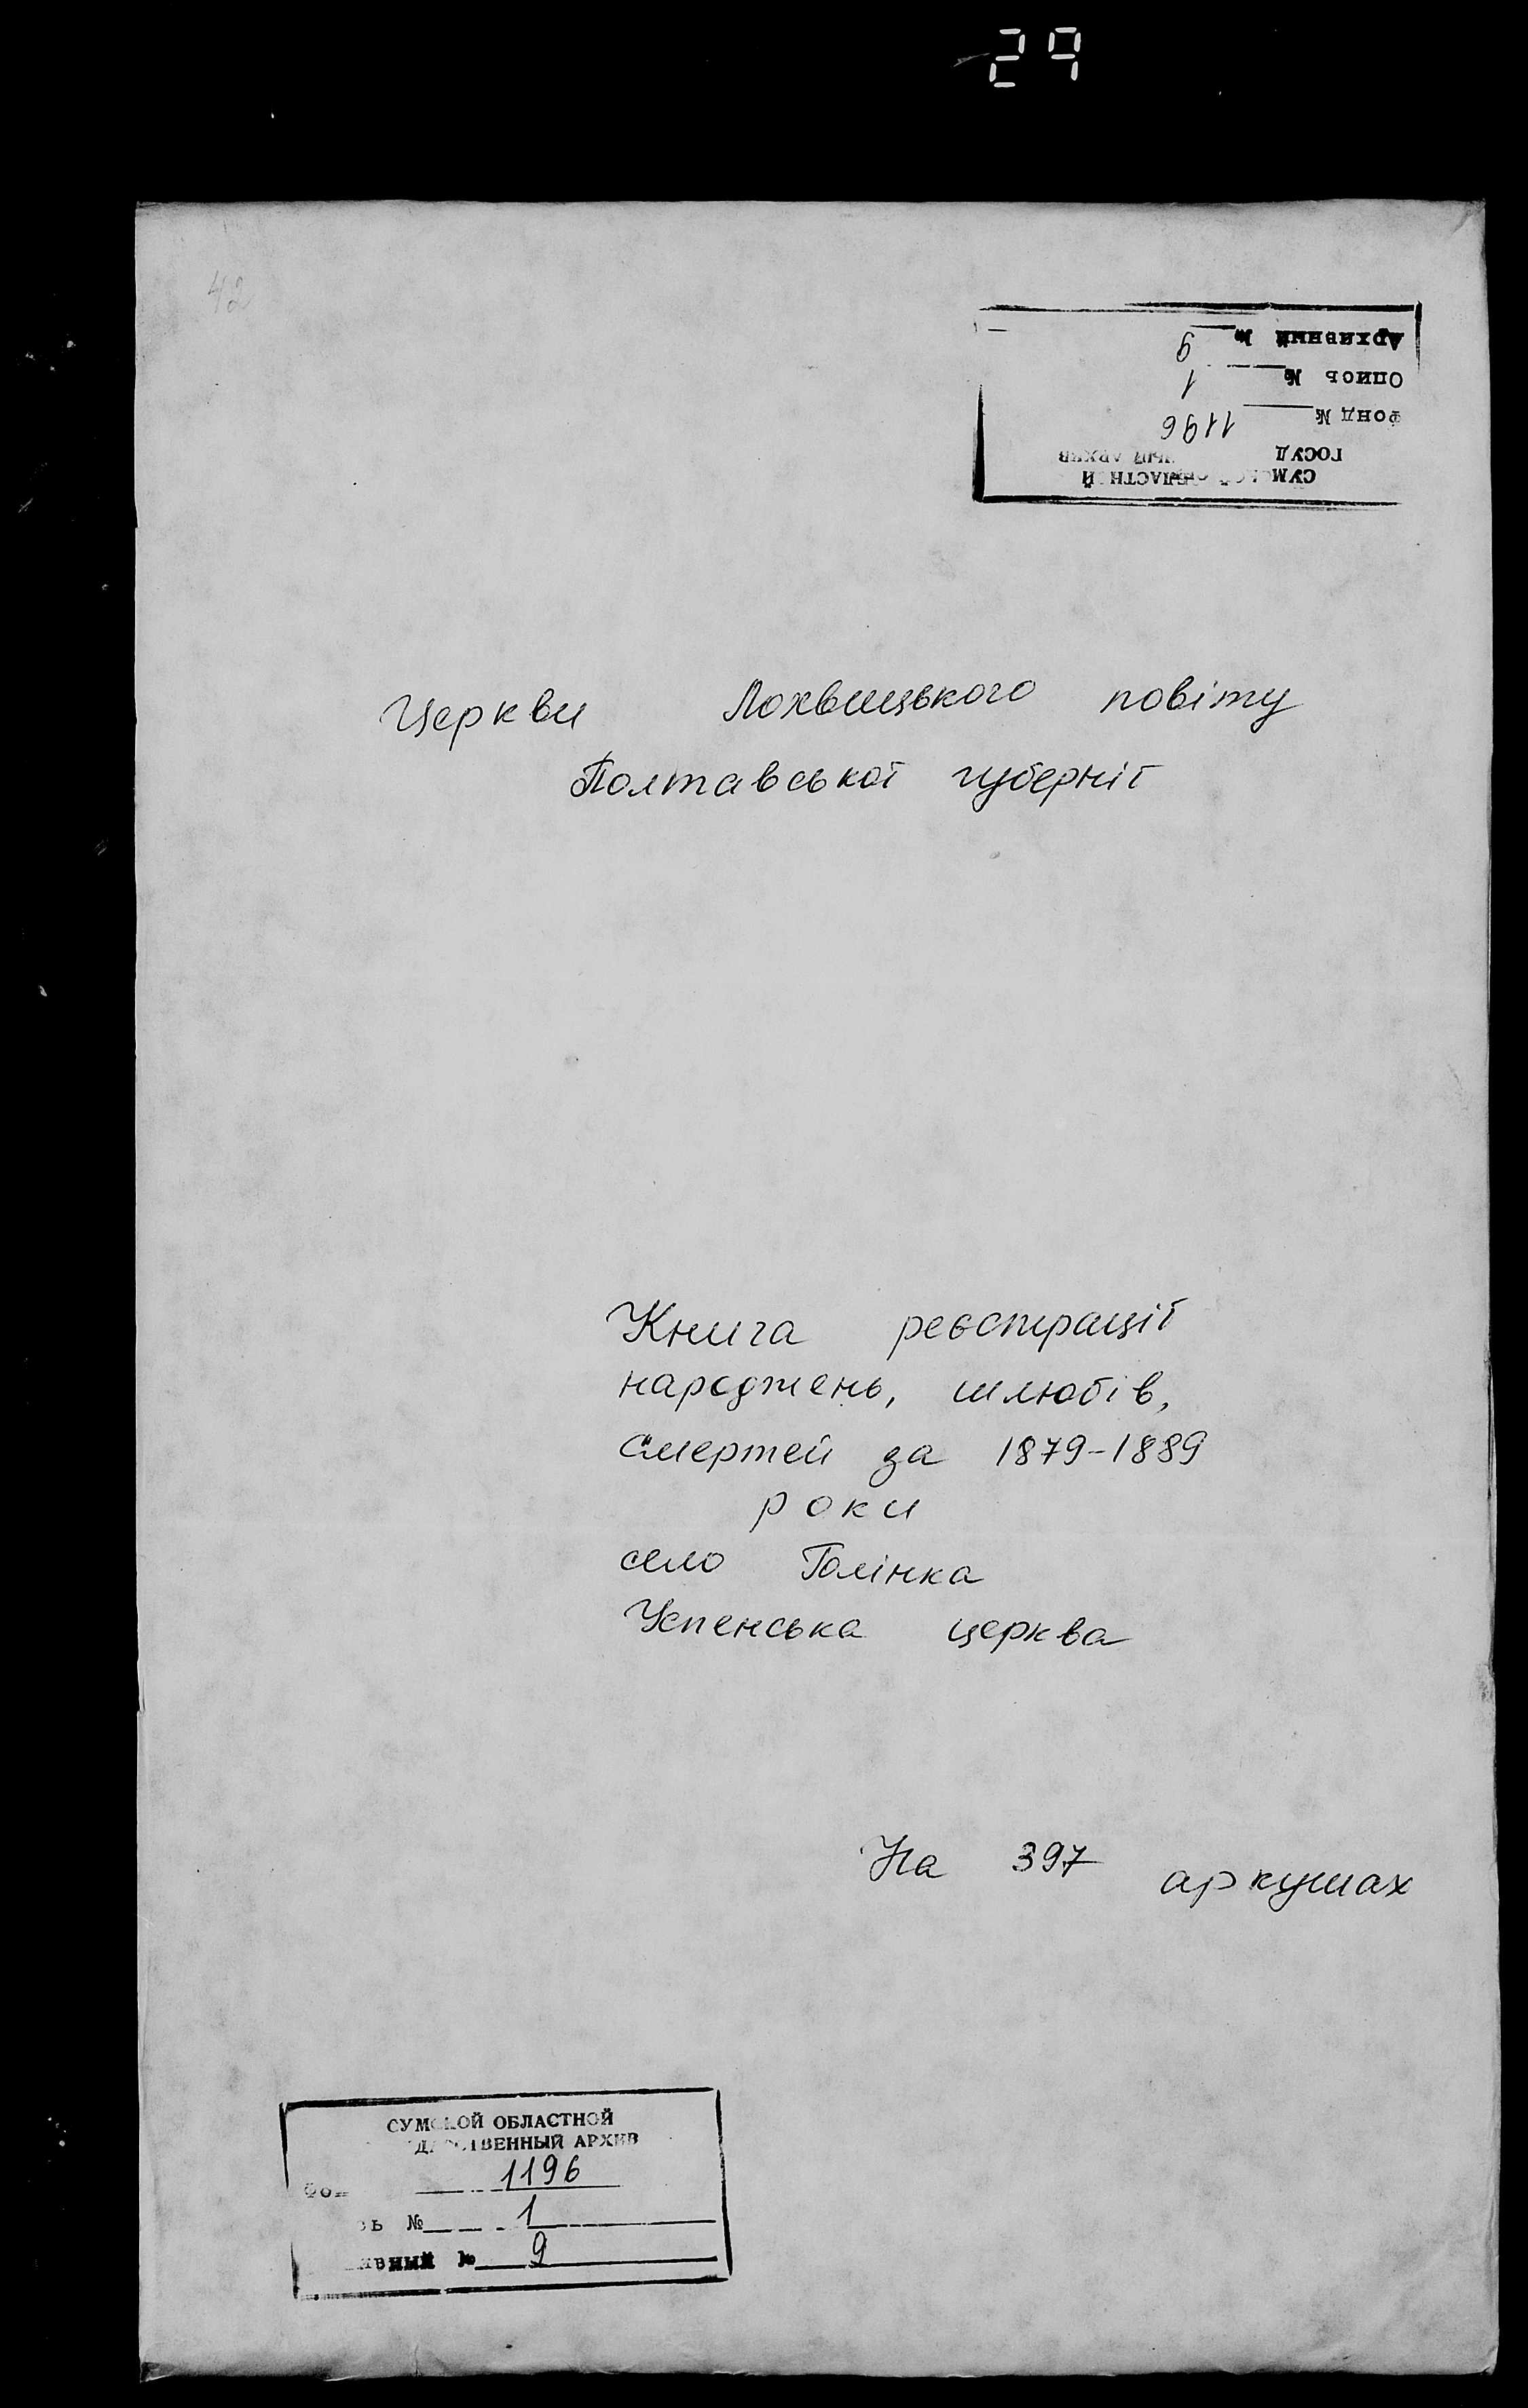 29
42
Архивный № 9
Опись № 1
Фонд № 1196
Церкви Лохвицького повіту
Полтавської губернії
Книга реєстрації
народжень, шлюбів,
смертей за 1879-1889
роки
село Голінка
Успенська церква
На 397 аркушах
СУМСКОЙ ОБЛАСТНОЙ
ДАРСТВЕННЫЙ АРХИВ
Фон 1196
ь № 1
ивный № 9